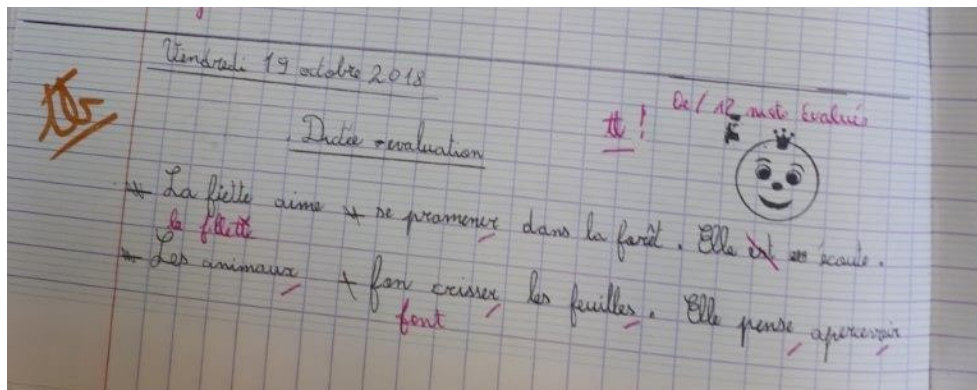 Vendredi 19 octobre 2018
TB
Dictée - evaluation
tt !
12 mots évalués
La fiette aime se promener dans la forêt. Elle est écoute.
la fillette
Les animaux fon crisser les feuilles. Elle pense apercevoir
font